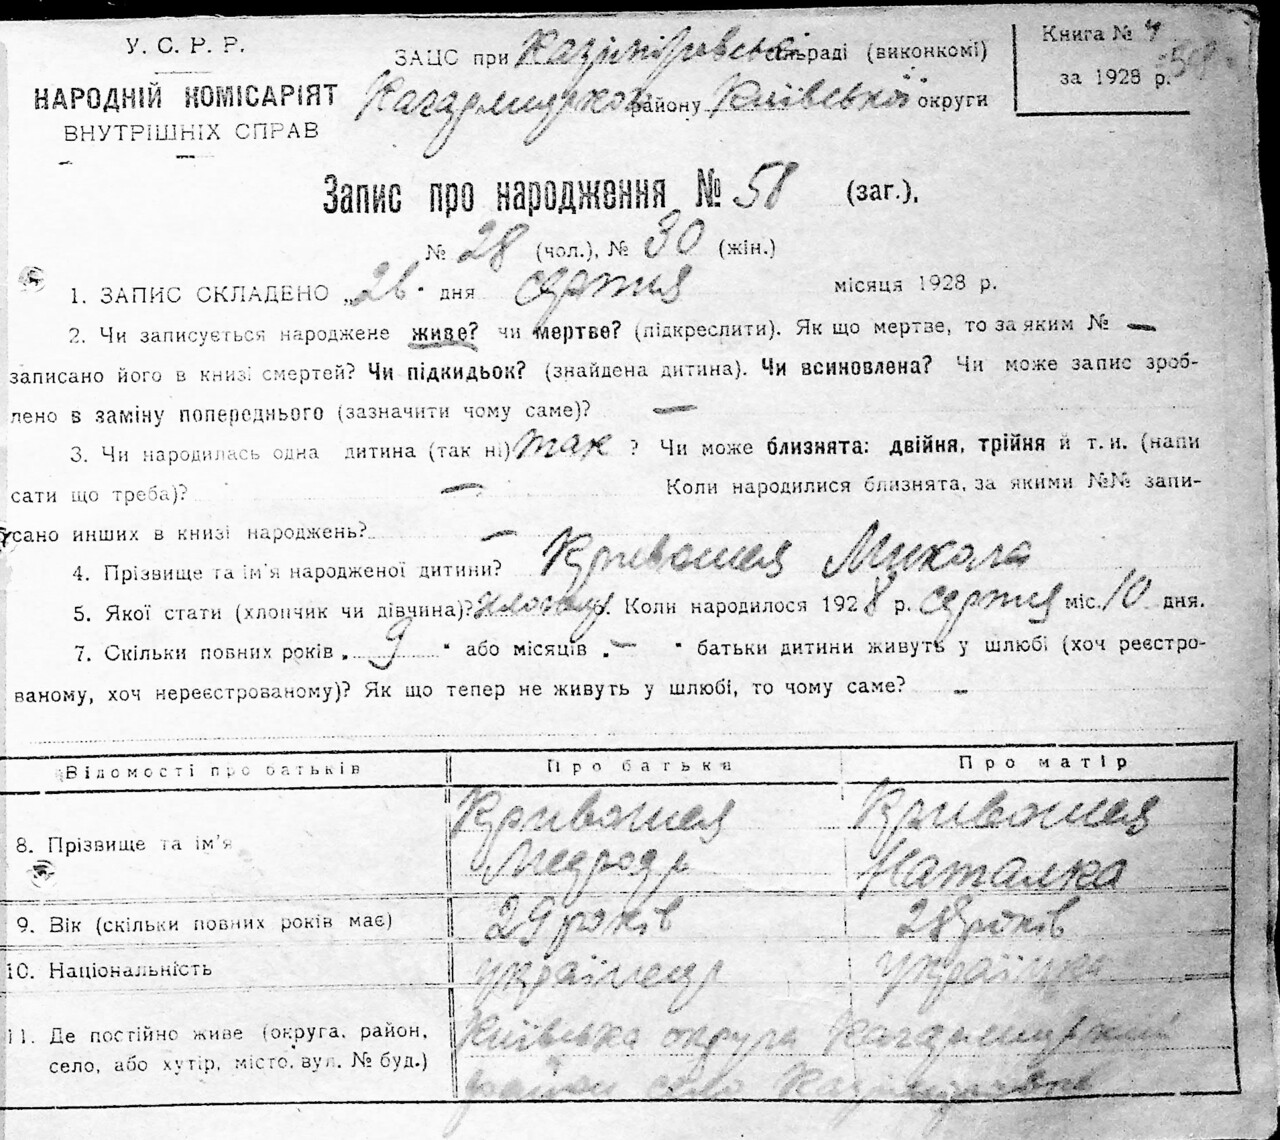 У. С. Р. Р.
НАРОДНІЙ КОМІСАРІЯТ
ВНУТРІШНІХ СПРАВ
ЗАЦС при Казіміровські сільраді (виконкомі)
Кагарлицьком району Київської округи
Книга № 4
за 1928 р.
58
Запис про народження № 58 (заг.),
№ 28 (чол.), № 30 (жін.)
1. ЗАПИС СКЛАДЕНО „26" дня серпня місяця 1928 р.
2. Чи записується народжене живе? чи мертве? (підкреслити). Як що мертве, то за яким № —
записано його в книзі смертей? Чи підкидьок? (знайдена дитина). Чи всиновлена? Чи може запис зроб-
лено в заміну попереднього (зазначити чому саме)? —
3. Чи народилась одна дитина (так ні) так ? Чи може близнята: двійня, трійня й т. и. (напи
сати що треба)? — Коли народилися близнята, за якими №№ запи-
сано инших в книзі народжень? —
4. Прізвище та ім'я народженої дитини? Кривошея Микола
5. Якої стати (хлопчик чи дівчина)? Коли народилося 1928 р. серпня міс. 10 дня.
7. Скільки повних років „ 9 " або місяців „ — " батьки дитини живуть у шлюбі (хоч реєстро-
ваному, хоч нереєстрованому)? Як що тепер не живуть у шлюбі, то чому саме? —
Відомості про батьків Про батька Про матір
8. Прізвище та ім'я Кривошея Кривошея
Наталка
9. Вік (скільки повних років має) 29 років 28 років
10. Національність українець українка
11. Де постійно живе (округа, район, Київська округа Кагарлицький
село, або хутір, місто, вул. № буд.) район село